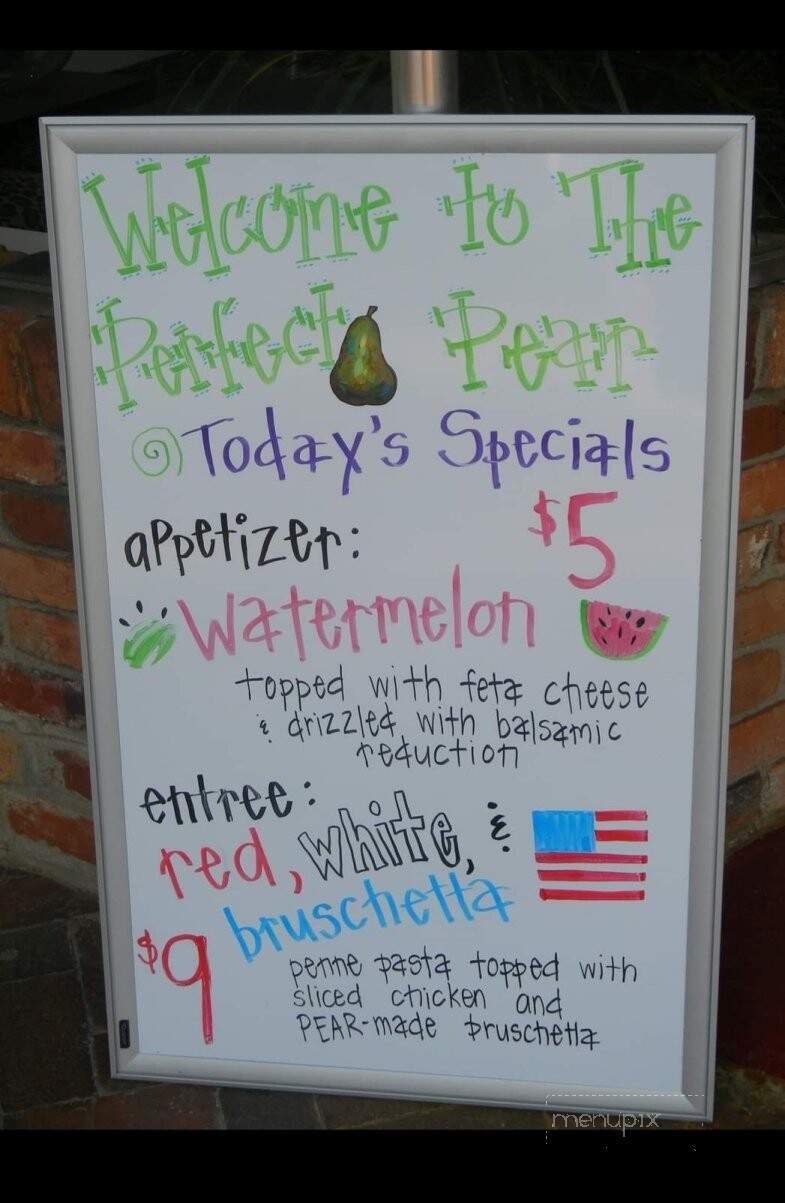 Welcome to The
Perfect Pear
Today's Specials
appetizer: $5
Watermelon
topped with feta cheese
& drizzled with balsamic
reduction
entree:
red, white, &
bruschetta
$9
penne pasta topped with
sliced chicken and
PEAR-made bruschetta
menupix